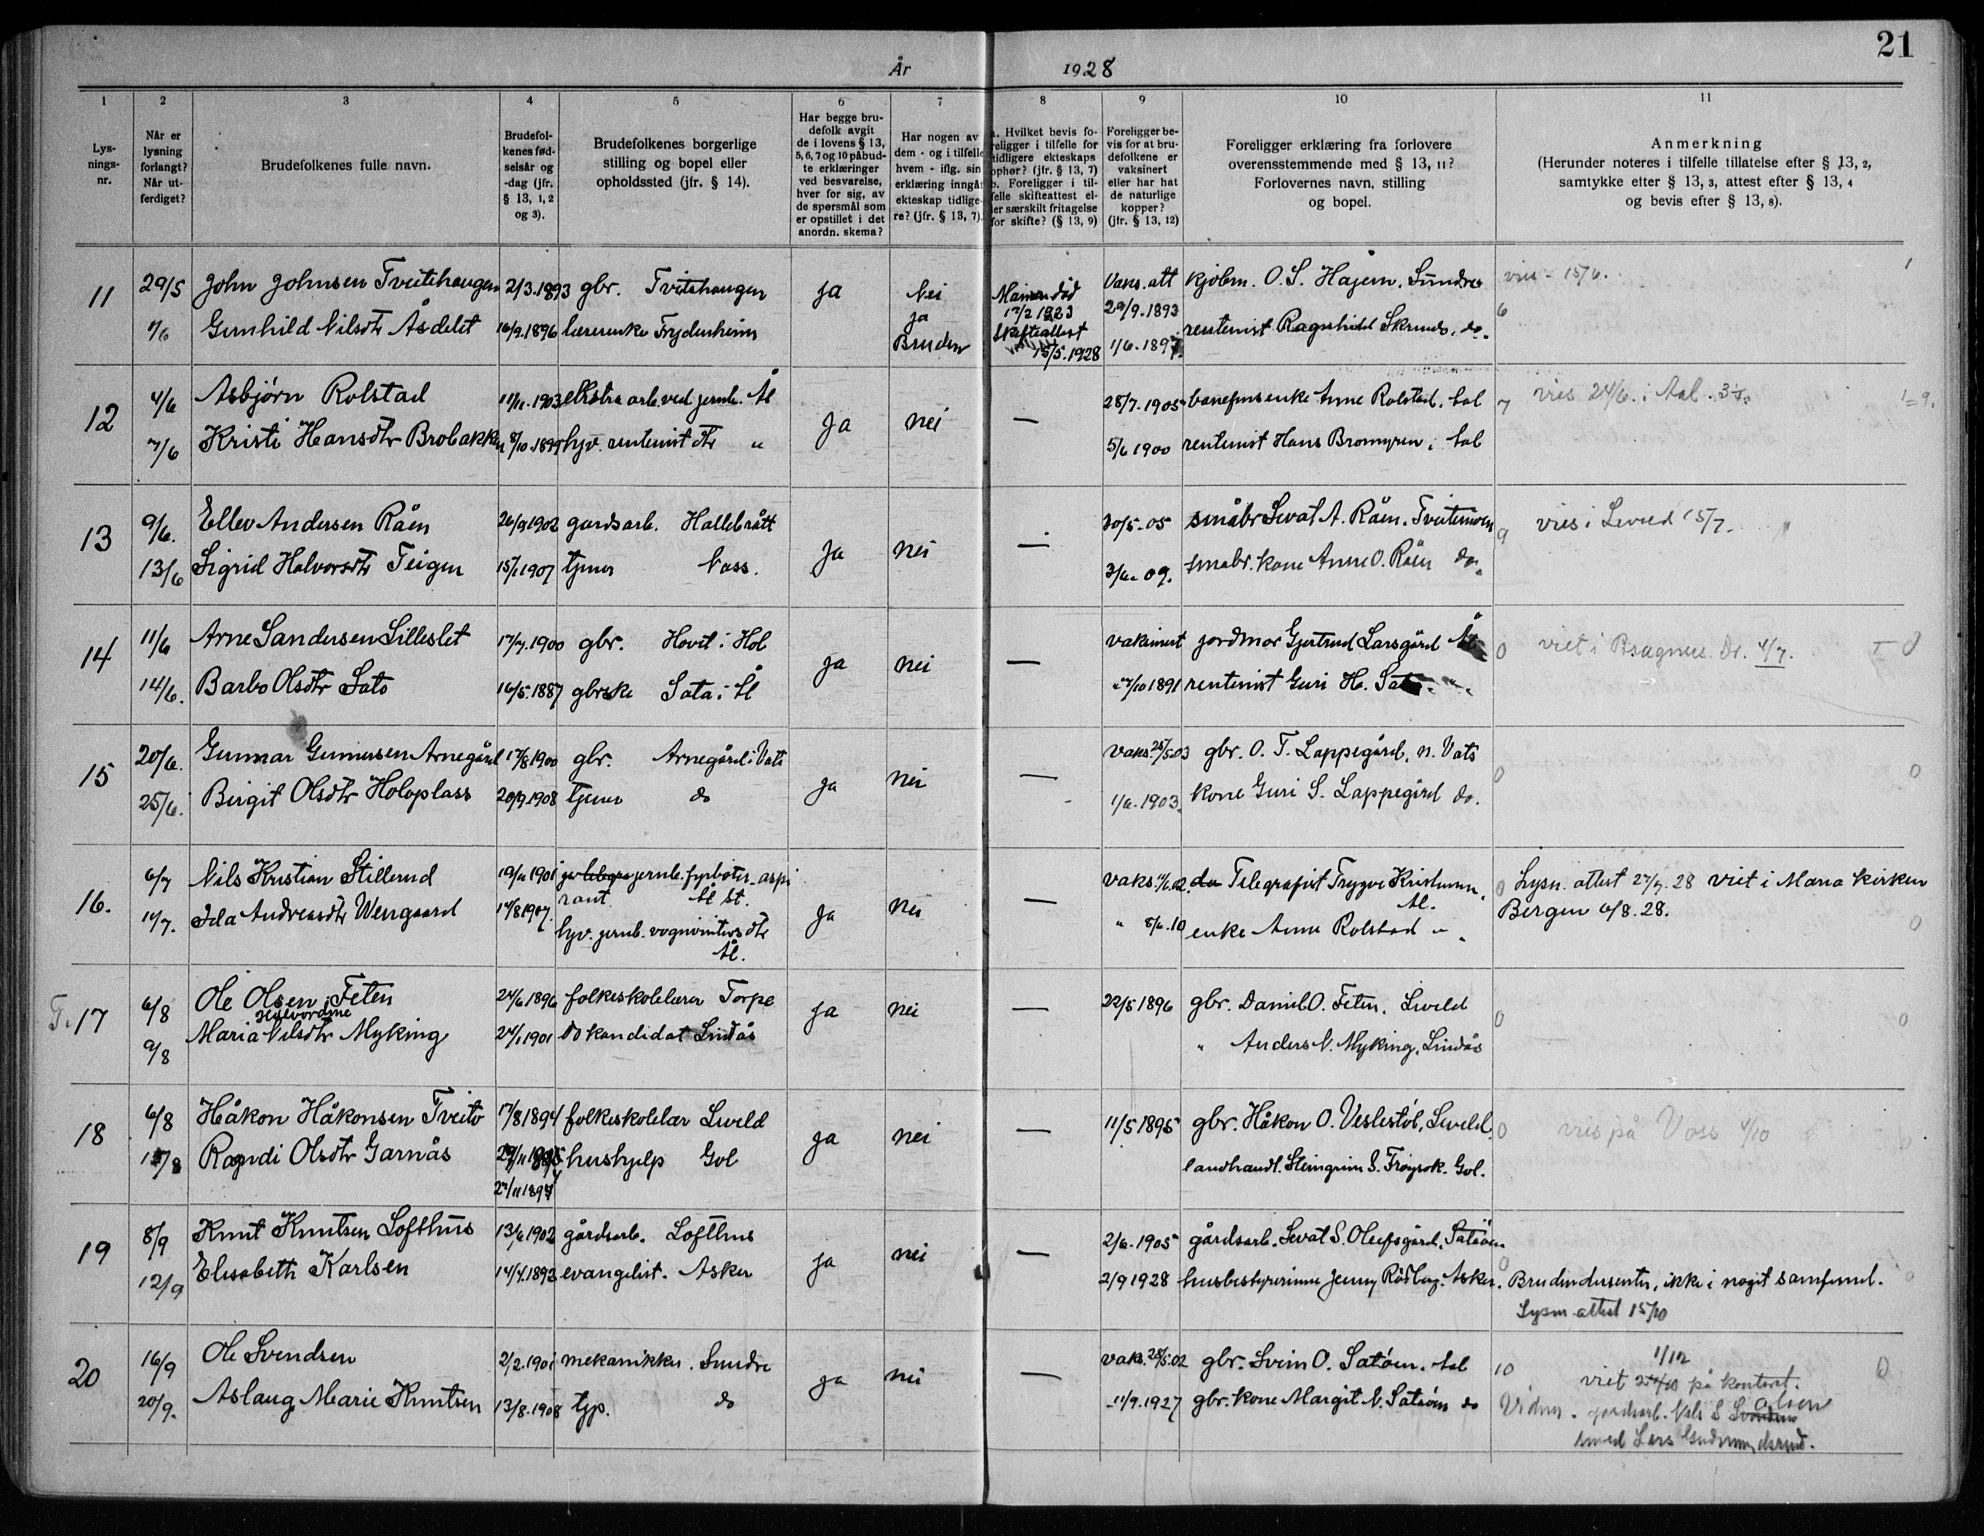 21
År 1928
1 2 3 4 5 6 7 8 9 10 11
Lys-
nings-
nr.
Når er
lysning
forlangt?
Når ut-
ferdiget?
Brudefolkenes fulle navn.
Brudefol-
kenes fød-
selsår og
-dag (jfr.
§ 13, 1, 2
og 3).
Brudefolkenes borgerlige
stilling og bopel eller
opholdssted (jfr. § 14).
Har begge bru-
defolk avgit
de i lovens § 13,
5, 6, 7 og 10 påbud-
te erklæringer
ved besvarelse,
hver for sig, av
de spørsmål som
er opstillet i det
anordn. skema?
Har nogen av
dem - og i tilfelle
hvem - iflg. sin
erklæring inngåt
ekteskap tidlige-
re? (jfr. § 13, 7).
a. Hvilket bevis fo-
religger i tilfelle for
tidligere ekteskaps
ophør? (jfr. § 13, 7)
b. Foreligger i til-
felle skifteattest el-
ler særskilt fritagelse
for skifte? (§ 13, 9)
Foreligger be-
vis for at bru-
defolkene er
vaksinert
eller har hat
de naturlige
kopper?
(jfr. § 13, 12)
Foreligger erklæring fra forlovere
overensstemmende med § 13, 11?
Forlovernes navn, stilling
og bopel.
Anmerkning
(Herunder noteres i tilfelle tillatelse efter § 13, 2,
samtykke efter § 13, 3, attest efter § 13, 4
og bevis efter § 13, 8).
11 29/5 John Johnsen Tveitehaugen 2/3.1893 gbr. Tvitehaugen ja Nei Mannen død Vaks. att kjøbm. O. S. Hagen, Sundre vies 15/6.
Gunhild Nilsdtr Åsdelet 16/9.1896 lærerenke Frydenheim ja Bruden 17/2 1923 Skifteattest 15/5.1928 29/9.1893 1/6.1897 rentenist Ragnhild Skrindo, do. 6
12 4/6 Asbjørn Rolstad 11/11.1903 ekstra arb. ved jernb. Ål Ja nei — 28/7.1905 banefms enke Anne Rolstad, Aal 7 vies 24/6. i Aal.
7/6 Kristi Hansdtr Brobakken 8/10.1899 hjv. rentenist dtr " 5/6 1900 rentenist Hans Bromyren, Aal
13 9/6. Ellev Andersen Råen 26/9 1902 gardsarb. Hallebrått Ja nei — 30/5-05 småbr Sevat A. Råen. Tveitemoen 9 vies i Leveld 15/7.
13/6 Sigrid Halvorsdtr Teigen 15/1 1907 tjener Nass. 3/6-09. småbr. kone Anne O. Råen do.
14 11/6 Arne Sandersen Lilleslet 17/7.1900 gbr. Hovet i Hol ja nei — vaksinert jordmor Gjertrud Larsgård Ål 0 viet i 4/7.
14/6. Barbo Olsdtr Sato 16/5.1887 gbrske Sata i Ål 27/10 1891 rentenist Guri H. Sato "
15 20/6. Gunnar Gunnarsen Arnegård 17/8 1900 gbr. Arnegård i Vats ja nei — vaks. 25/5 03 gbr. O. T. Lappegård. n. Vats 0 0
25/6. Birgit Olsdtr Holoplass 20/9.1908 tjener do 1/6.1903 kone Guri S. Lappegård do.
16. 6/7 Nils Kristian Stillerud 19/11 1901 jernb. fyrbøter-aspi- Ja nei — vaks 11/6.02. Telegrafist Trygve Kristensen, Ål. 0 Lysn. attest 27/7.28 viet i Maria kirken
14/7. Ida Andreasdtr Wengaard 14/8 1907. rant. Ål st. hjv. jernb. vognvisiters dtr Ål. " 8/6.10 enke Anne Rolstad " Bergen 6/8.28. 0
17 6/8 Ole Olsen Feten 24/6 1896 folkeskolelærer Torpe ja nei — 22/5 1896 gbr. Daniel O. Feten, Leveld 0 0
9/8 Maria Nilsdtr Myking 24/1 1901 do kandidat Lindås " Anders N. Myking, Lindås
18 6/8 Håkon Håkonsen Tveito 17/8 1894 folkeskolelær Leveld ja nei — 11/5 1895 gbr. Håkon O. Veslestøl, Leveld. 0 vies på Voss 4/10
Randi Olsdtr Garnås 27/11 1897 hushjelp Gol landhandl. Steingrim S. Frøysok. Gol.
19 8/9 Knut Knutsen Lofthus 13/6 1902 gårdsarb. Lofthus ja nei — 2/6.1905 gårdsarb. Sevat S. Oleifsgård, Satøen
12/9 Elisabeth Karlsen 14/4.1892 evangelist. Asker 2/9 1928 husbestyrerinne Jenny Rødberg. Asker. 0 Bruden dissenter, ikke i noget samfund.
Lysn attest 15/10
20 16/9 Ole Svendsen 2/2.1901 mekanikker. Sundre ja nei — vaks. 28/5.02 gbr. Svein O. Satøen. Aal 10 1/12 viet på kontoret. 0
20/9. Aslaug Marie Knutsen 13/8.1908 tjp. do 11/9.1927 gbr. kone Margit N. Satøen do Vidner. gardsarb. Nils S Olsen
smed Lars Gudmundsrud.